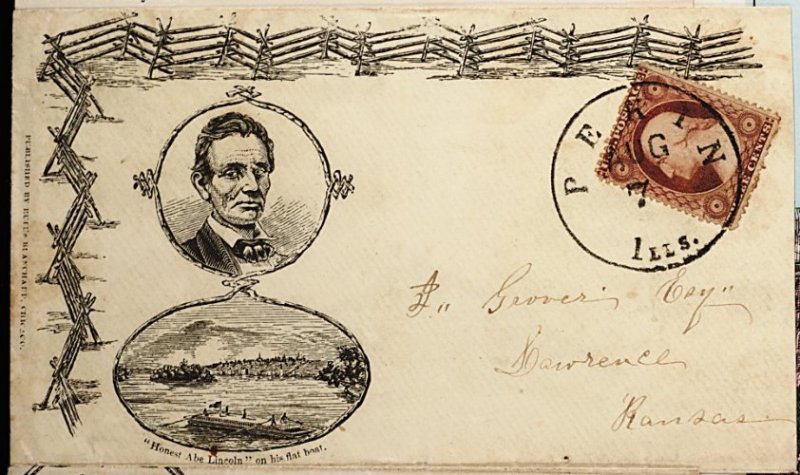 PUBLISHED BY
PEKIN
AUG
7
ILLS.
3 CENTS.
"Honest Abe Lincoln" on his flat boat.
Grover Esq"
Lawrence
Kansas